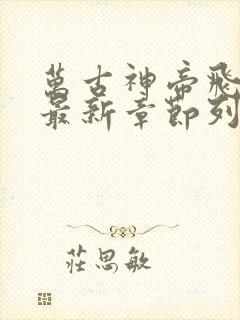 萬古神帝飛
最新章節列
莊思敏